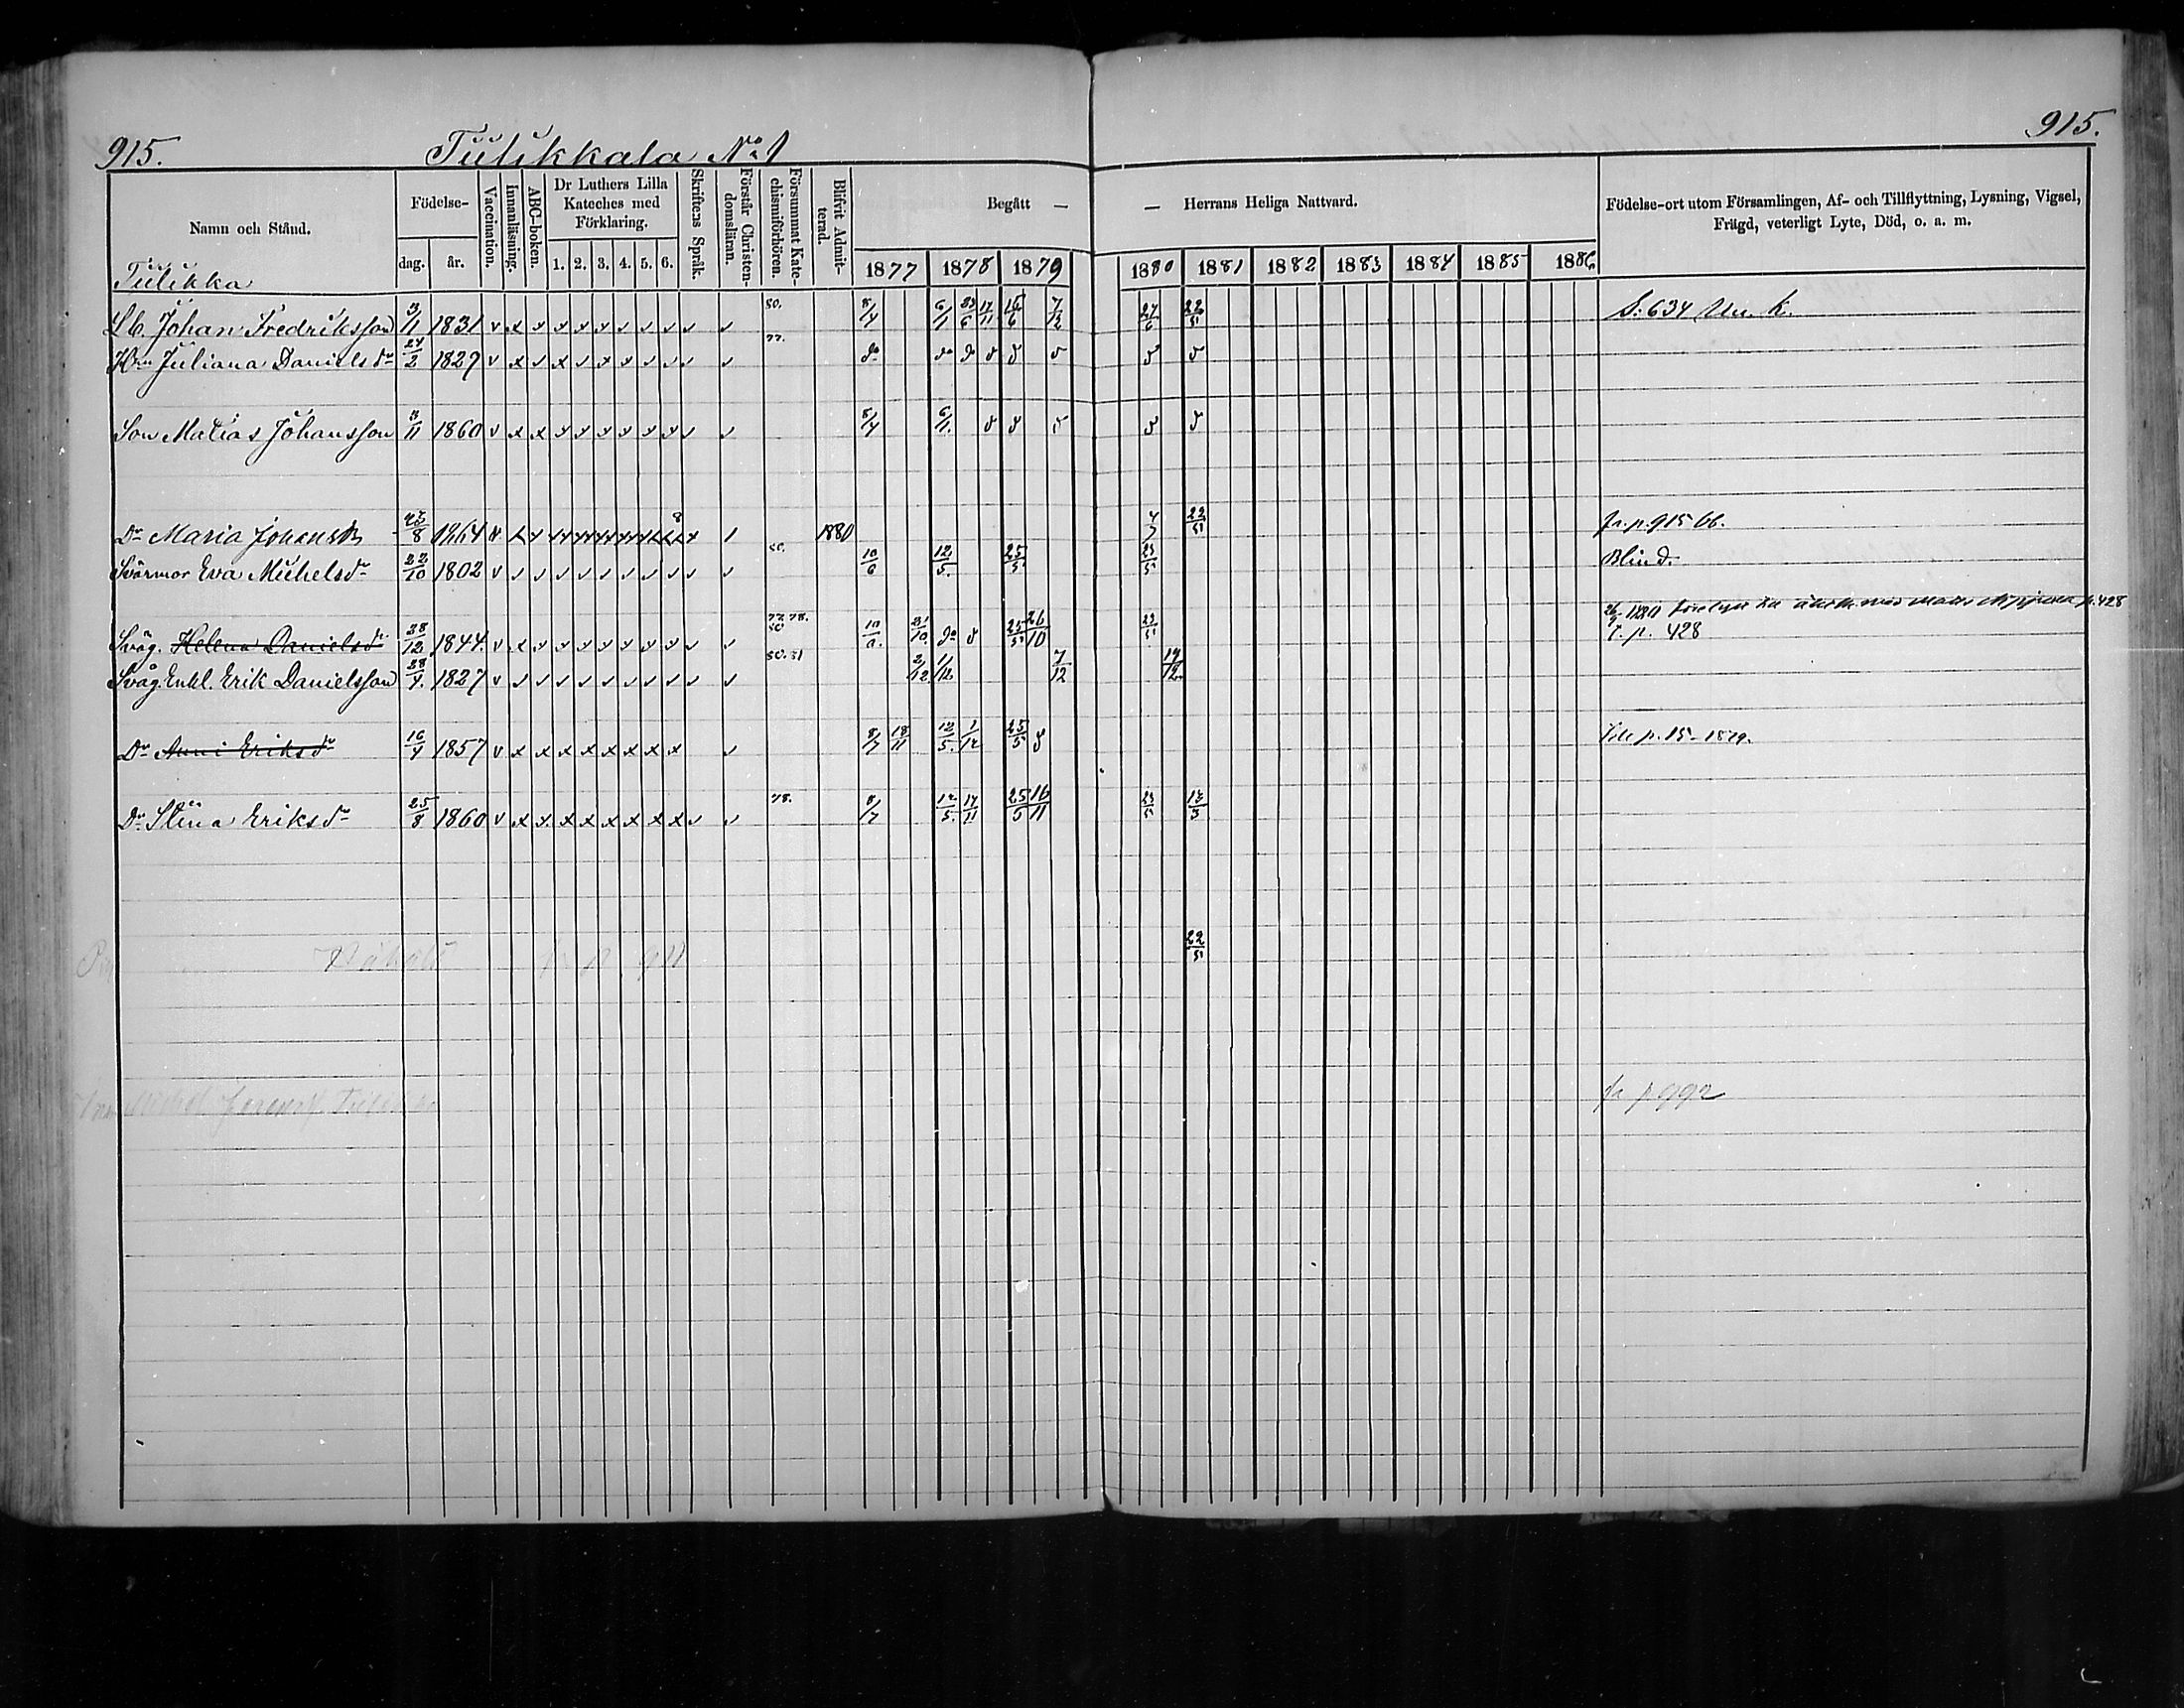 915.
Tulikkala No 1
915.
Namn och Stånd.
Födelse-
dag.
år.
Vaccination.
Innanläsning.
ABC-boken.
Dr Luthers Lilla Kateches med Förklaring.
1. 2. 3. 4. 5. 6.
Skriftens Språk.
Förstår Christendomsläran.
Försummat Katechismiförhören.
Blifvit Admitterad.
Begått — — Herrans Heliga Nattvard.
1877 1878 1879 1880 1881 1882 1883 1884 1885 1886
Födelse-ort utom Församlingen, Af- och Tillflyttning, Lysning, Vigsel,
Frägd, veterligt Lyte, Död, o. a. m.
Tulikka
Lb. Johan Fredriksson 3/11 1831 80. 8/4 6/1 23/6 17/11 16/6 7/12 27/6 22/5 S: 634 Un. k.
Hu Juliana Danielsdr 24/2 1829 77. do do do
Son Matias Johansson 3/11 1860 8/4 6/1
Dr Maria Johansdr 1864 1880 22/5 fr. p. 915 bb.
Svärmor Eva Michelsdr 22/10 1802 80. 10/6 12/5 25/5 23/5 Blind.
Sväg. Helena Danielsdr 28/12 1844 77 78. 80 21/10 do 25/5 26/10 23/5 p. 428
T. p. 428
Svåg. Enkl. Erik Danielsson 28/4 1827 80. 81 2/12 1/12 7/12 19/12
Dr Anni Eriksdr 16/4 1857 8/7 18/11 12/5 1/12 25/5 p. 15 - 1879.
Dr Stina Eriksdr 25/8 1860 78. 8/7 12/5 17/11 25/5 16/11 23/5 13/3
22/5
fr p 992